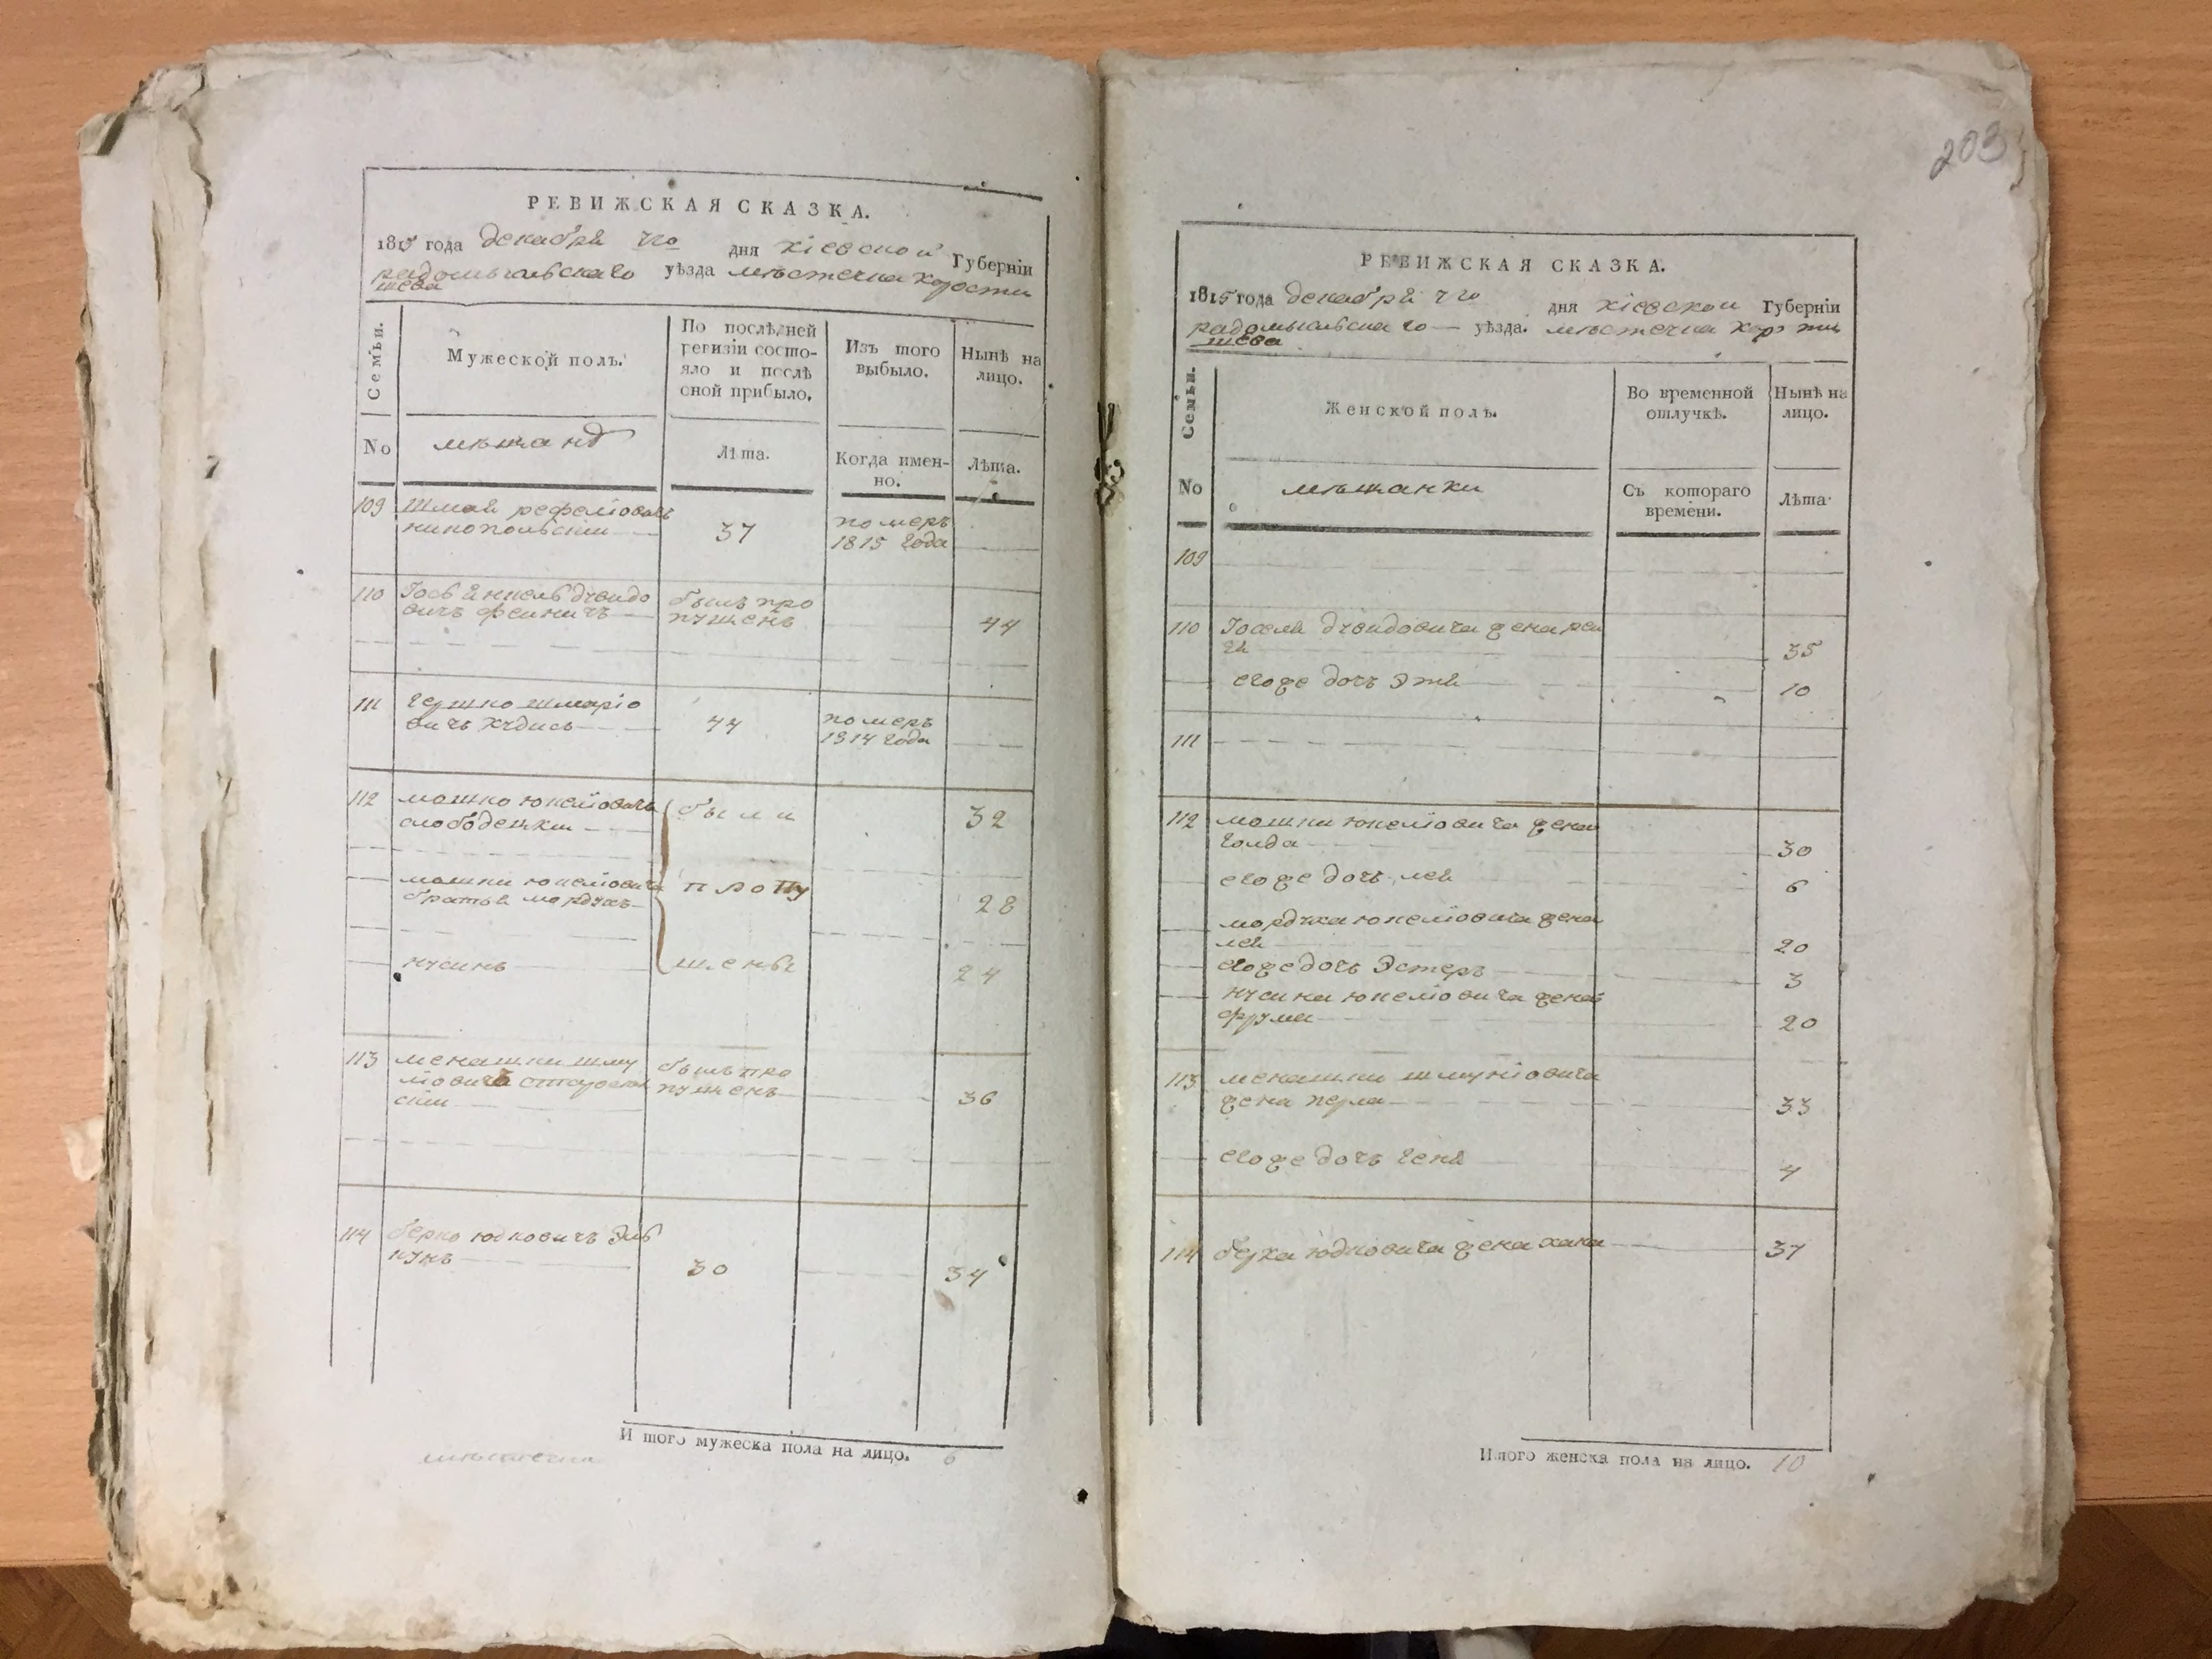 РЕВИЖСКАЯ СКАЗКА.
1815 года декабря дня кіевской Губерніи
радомысльскаго уѣзда мѣстечка корости
шева
Семьи.
Мужеской полъ.
По послѣдней
ревизіи состо-
яло и послѣ
оной прибыло.
Изъ того
выбыло.
Нынѣ на
лицо.
No
мѣщанъ
Лѣта.
Когда имен-
но.
Лѣта.
109 Шмая рефеліовичъ
37
померъ
1815 года
110
вичъ
былъ про
пущенъ
44
111 гершко шмаріо
вичъ
44
померъ
1814 года
112 мошко юкеліовичъ
слободецкіи
были
32
мошки юкеліовича
братья мордухъ
пропу
28
нусинъ
щены
24
113 менашки шму
ліовичъ
сіи
былъ про
пущенъ
36
114 берко юдковичъ
30
34
И того мужеска пола на лицо. 6
мѣстечка
203
РЕВИЖСКАЯ СКАЗКА.
1815 года декабря дня кіевской Губерніи
радомысльскаго уѣзда. мѣстечка корости
шева
Семьи.
Женской полъ.
Во временной
отлучкѣ.
Нынѣ на
лицо.
No
мѣщанки
Съ котораго
времени.
Лѣта
109
110 Іоселя дувидовича жена реи
35
егоже дочь Этя
10
111
112 мошки юкеліовича жена
голда
30
егоже дочь лея
6
мордуха юкеліовича жена
лея
20
егоже дочь Эстеръ
3
нусина юкеліовича жена
фрума
20
113 менашки шмуліовича
жена перла
33
егоже дочь геня
4
114 берка юдковича жена хана
37
Итого женска пола на лицо. 10